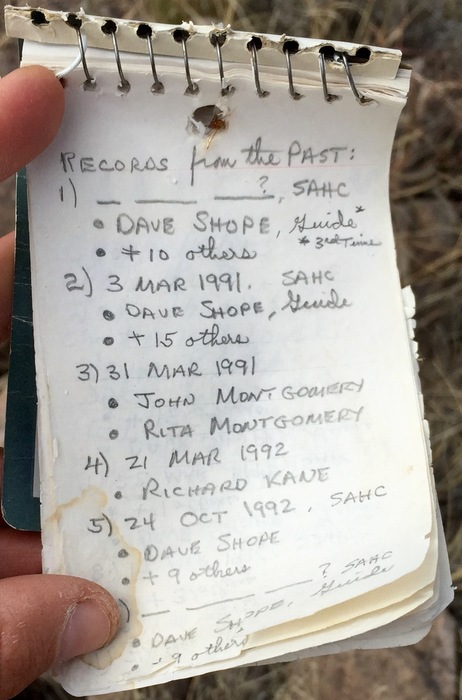 RECORDS from the PAST:
1) _ ___ ___?, SAHC
• DAVE SHOPE, Guide*
* 3rd Time
• + 10 others
2) 3 MAR 1991. SAHC
• DAVE SHOPE, Guide
• + 15 others
3) 31 MAR 1991
• JOHN MONTGOMERY
• RITA MONTGOMERY
4) 21 MAR 1992
• RICHARD KANE
5) 24 OCT 1992, SAHC
• DAVE SHOPE
• + 9 others
) _ ___ ___ ? SAHC
• DAVE SHOPE, Guide
• + 9 others